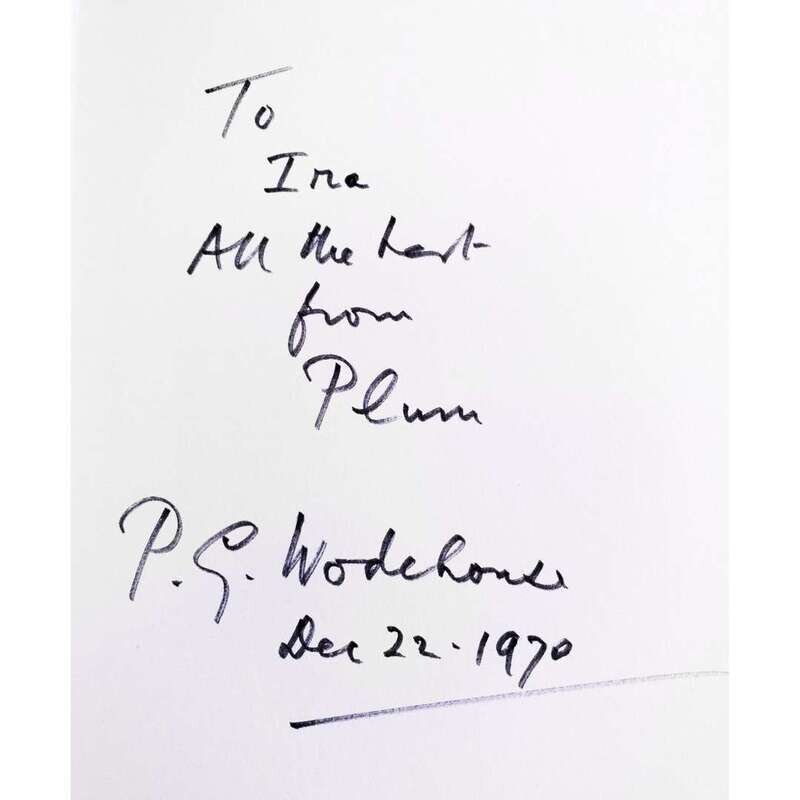 To
Ira
All the best
from
Plum
P. G. Wodehouse
Dec 22. 1970